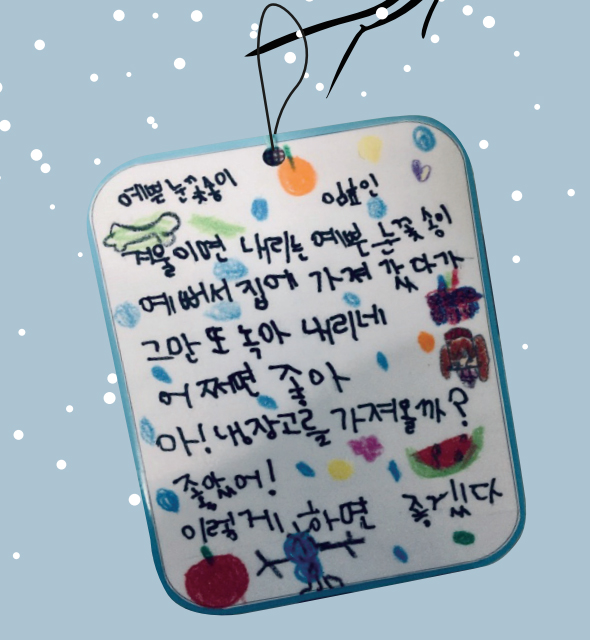 예쁜 눈꽃송이
겨울이면 내리는 예쁜 눈꽃송이
예뻐서 집에 가져 갔다가
그만 또 녹아 내리네
어쩌면 좋아
아! 냉장고를 가져올까?
좋았어!
이렇게 하면 좋겠다